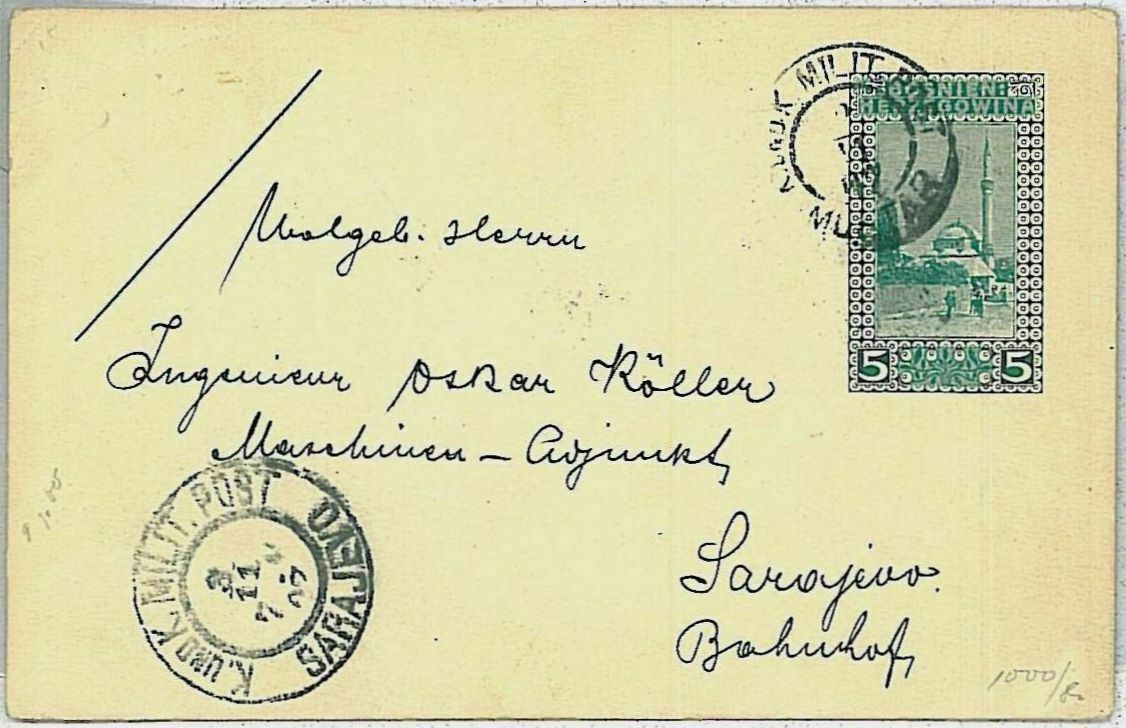 K. UND K. MILIT. POST
MOSTAR
BOSNIEN-
HERZEGOWINA
5 5
Wolgeb. Herrn
Ingenieur Oskar Köller
Maschinen – Adjunkt,
Sarajevo.
Bahnhof,
K. UND K. MILIT. POST SARAJEVO
3
11
07
1000/8